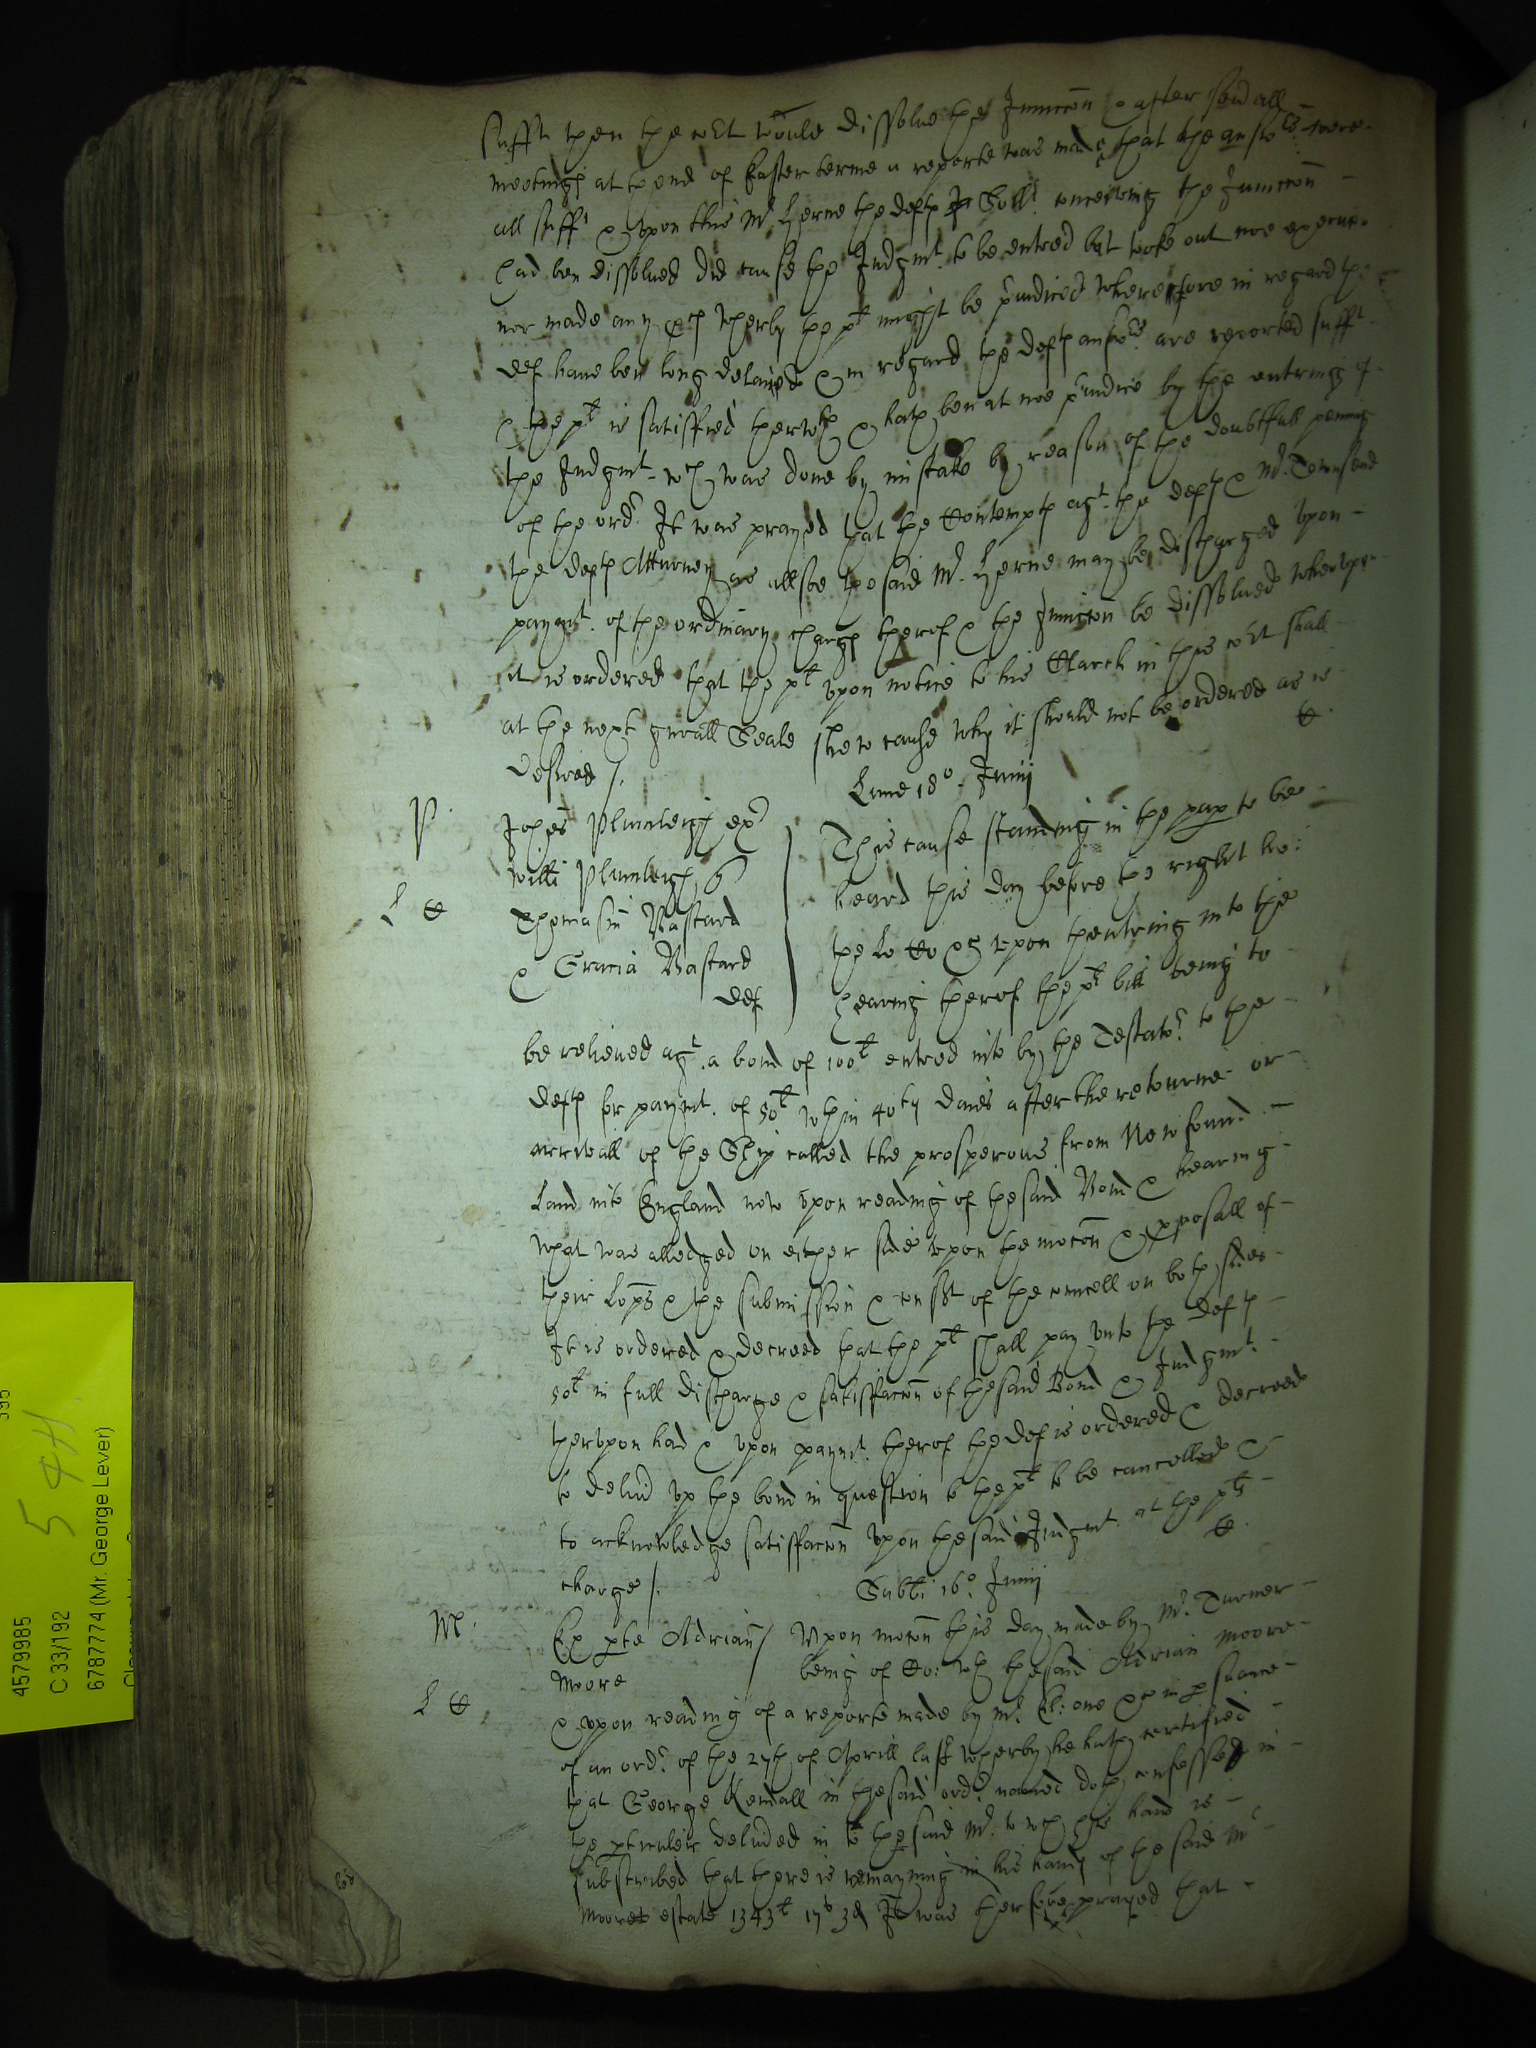 sufft then the cort would dissolve the Iniuncon & after sevall
meetings at thend of Easter terme a reporte was made that the answrs were
all sufft & upon this Mr Herne the defts Sollr conceiving the Iniuncon
had ben dissolved did cause the Iudgmt to be entred but tooke out noe execucon
nor made any wherby the plt might be preiudiced wherefore in regard the
def have ben long delaied & in regard the defts answrs are reported sufft
& the plt is satisfied therwth & hath ben at noe preiudice by the entring of
the Iudgmt wch was done by mistake by reason of the doubtfull penning
of the ordr It was prayed that the Contempts agt the defts & Mr Townsend
the defts Atturney as allsoe the said Mr Herne may be discharged upon
paymt of the ordinary charges therof & the Iniuncon be dissolved wherupon
it is ordered that the plt upon notice to his Clarck in this cort shall
at the next gnrall Seale shew cause why it should not be ordered as is
desired /.
Lune 18o Junij
P.
Johes Plumleigh exr
Willi Plumleigh
Thomasin Bastard
& Gracia Bastard
def
This cause standing in the paper to be
heard this day before the right ho:
the Lo Co &c upon thentring into the
hearing therof the plt bill being to
be relieved agt a bond of 100l entred into by the Testator to the
defts for paymt of 50l wthin 40ty daies after the retourne or
arrivall of the Ship called the prosperous from Newfound
Land into England now upon reading of the said Bond & hearing
what was alledged on either side upon the mocon & proposall of
their Lopps & the submission & consent of the councell on both sides
It is ordered & decreed that the plt shall pay unto the defts
50l in full discharge & satisfaccon of the said Bond & Iudgmt
therupon had & upon paymt therof the def is ordered & decreed
to delivr up the bond in question to the plt to be cancelled &
to acknowledge satisfaccon upon the said Iudgmt at the plts
charge /.
Sabbti 16o Junij
M.
Ex pte Adrian
Moore
Upon mocon this day made by Mr Turner
being of Co: wth the said Adrian Moore
& upon reading of a reporte made by Mr one &c in pursuance
of an ordr of the 27th of Aprill last wherby he hath certified
that George Kendall in the said ordr named doth confesse in
the pticulers delivred in to the said Mr to wch his hand is
subscribed that there is remayning in his hands of the said Mr
Moores estate 1343l 17s 3d It was therfore prayed that
4579985
C 33/192
6787774 (Mr. George Lever)